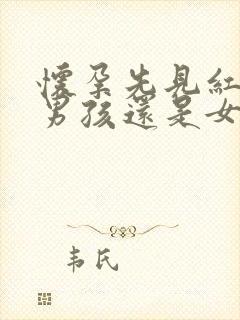 懷孕先見紅
男孩還是女
韦氏